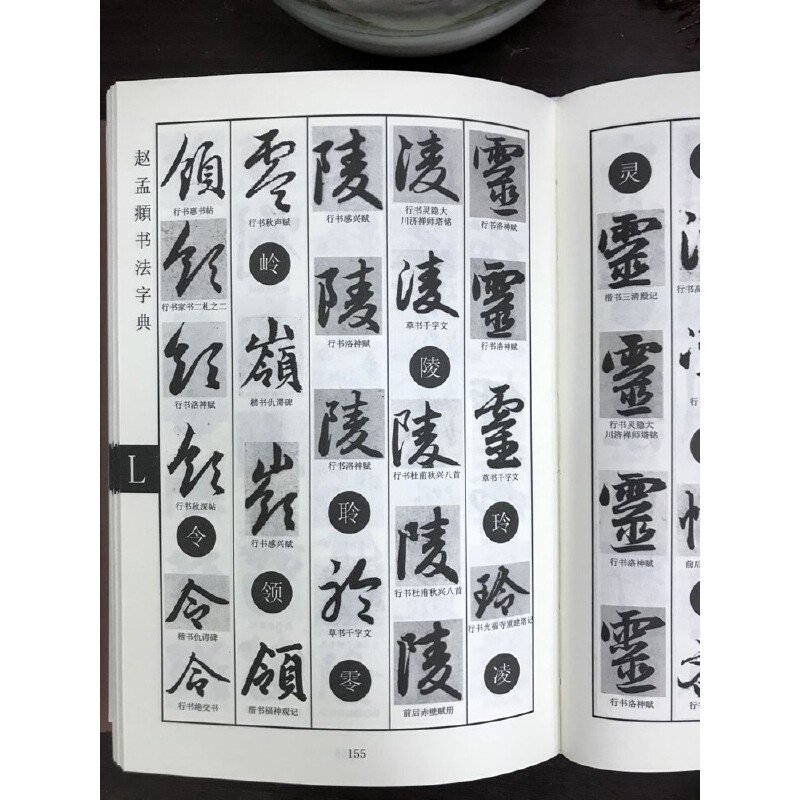 赵孟頫书法字典
L
領
行书惠书帖
領
行书家书二札之二
領
行书洛神赋
領
行书秋深帖
令
令
楷书仇谔碑
令
行书绝交书
零
行书秋声赋
岭
嶺
楷书仇谔碑
嶺
行书感兴赋
领
領
楷书福神观记
陵
行书感兴赋
陵
行书洛神赋
陵
行书洛神赋
聆
聆
草书千字文
零
凌
行书灵隐大
川济禅师塔铭
凌
草书千字文
陵
陵
行书杜甫秋兴八首
陵
行书杜甫秋兴八首
陵
前后赤壁赋册
靈
行书洛神赋
靈
行书洛神赋
靈
草书千字文
玲
玲
行书光福寺重建塔记
凌
155
灵
靈
楷书三清殿记
靈
行书灵隐大
川济禅师塔铭
靈
行书洛神赋
靈
行书洛神赋